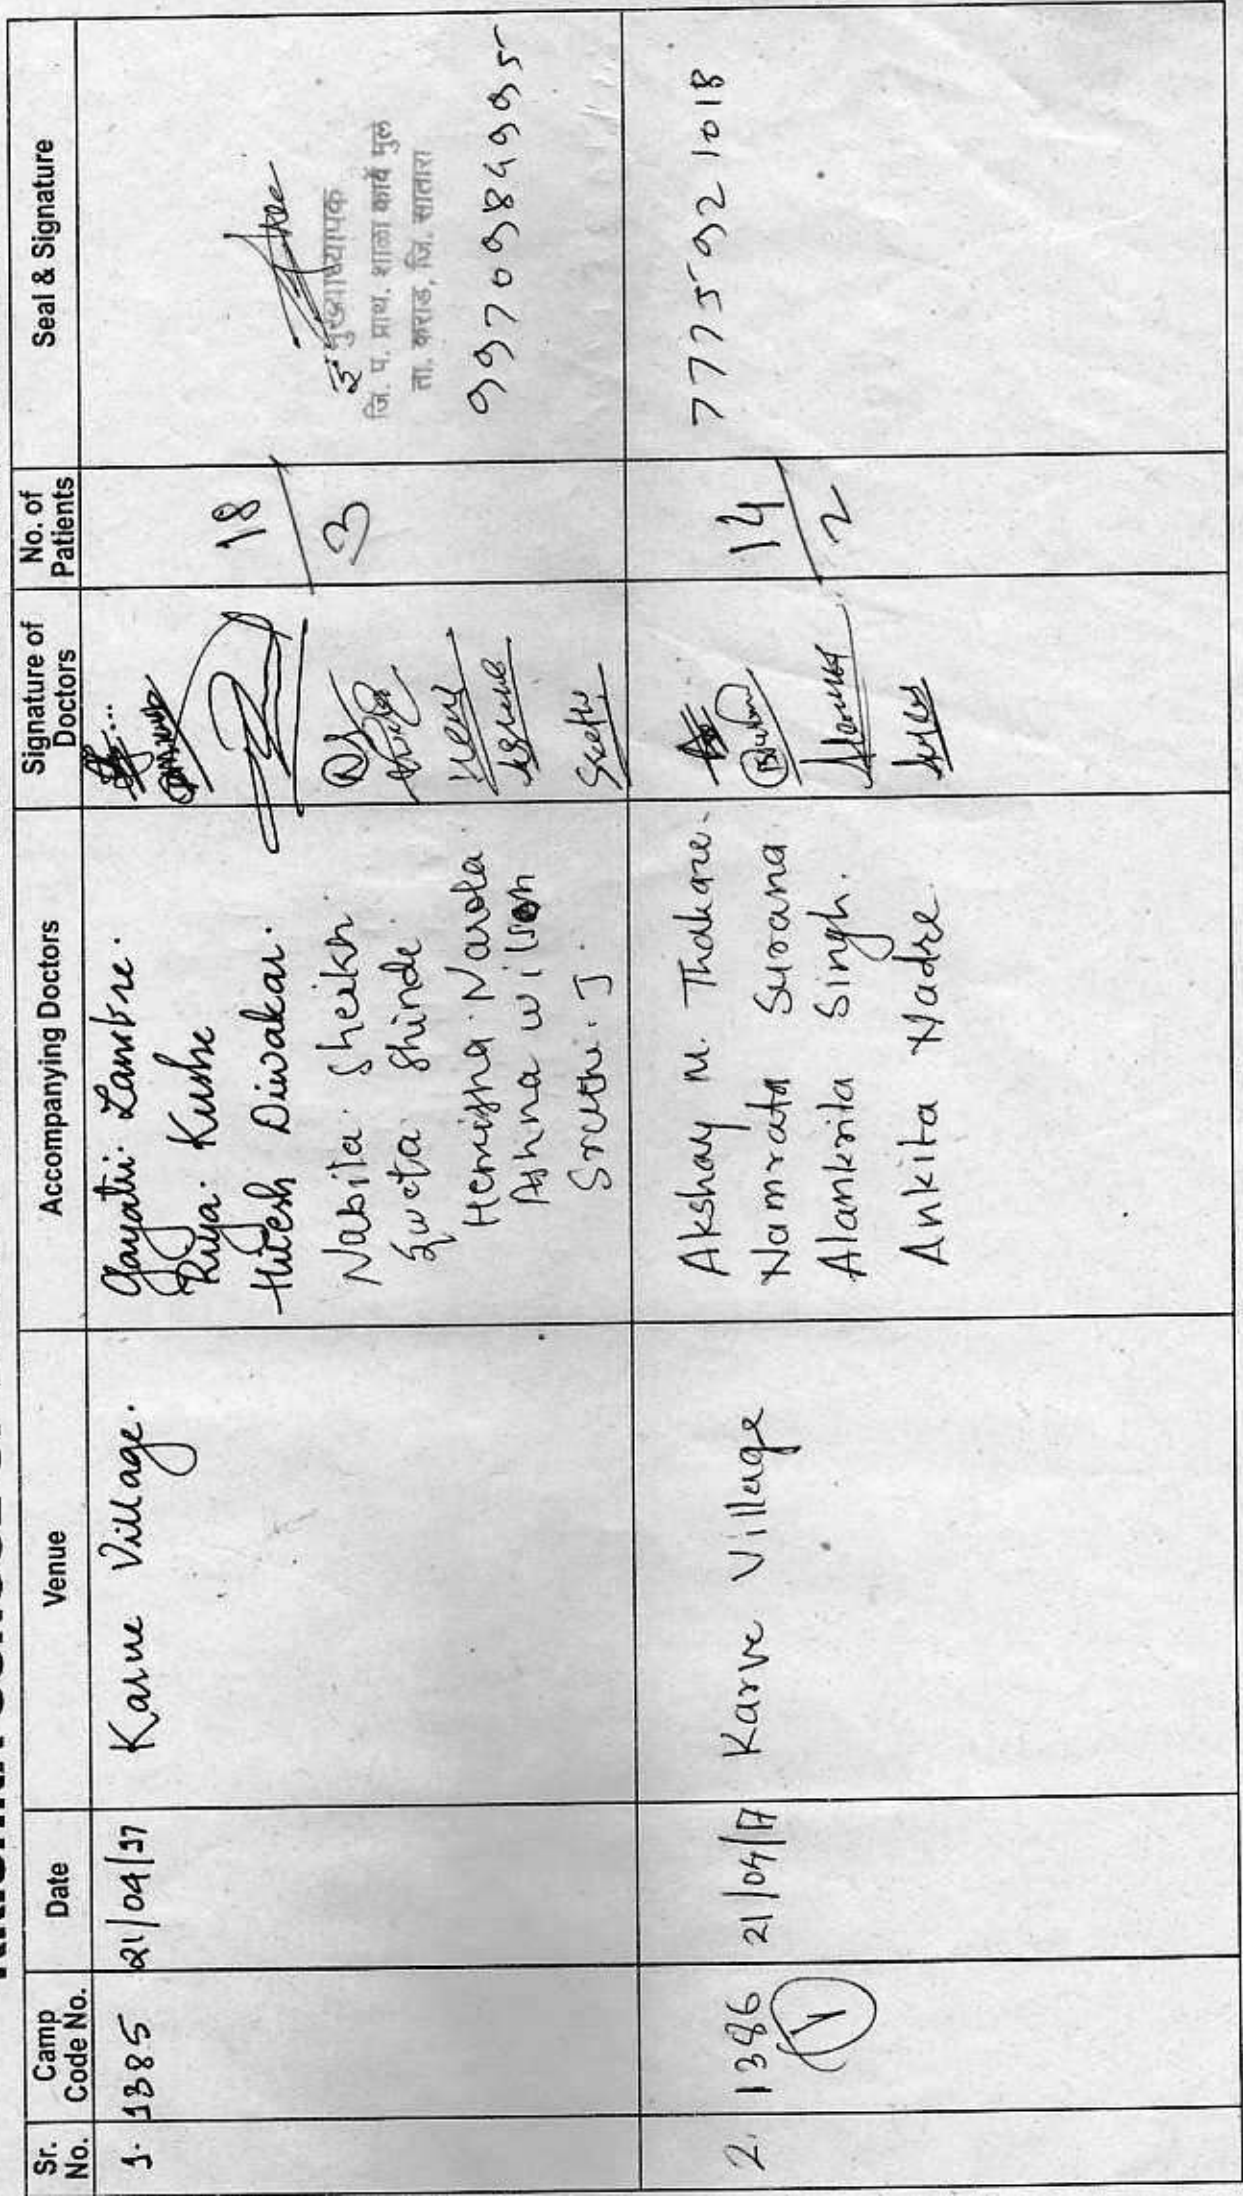 Sr. No.
Camp Code No.
Date
Venue
Accompanying Doctors
Signature of Doctors
No. of Patients
Seal & Signature
1. 1385 21/04/17 Karve Village.
Gayatri Lambre.
Riya. Kushe
Hitesh Diwakar.
Nabila Sheikh.
Sweta Shinde.
Hemisha Narola.
Ashna Wilson
Sruthi. J.
18/3
मुख्याध्यापक
जि. प. प्राथ. शाळा कार्वे मुल
ता. कराड, जि. सातारा
9970984995
2. 1386 21/04/17 Karve Village
Akshay M. Thakare.
Namrata Surana
Alankrita Singh.
Ankita Nadre.
14/2
7775921018